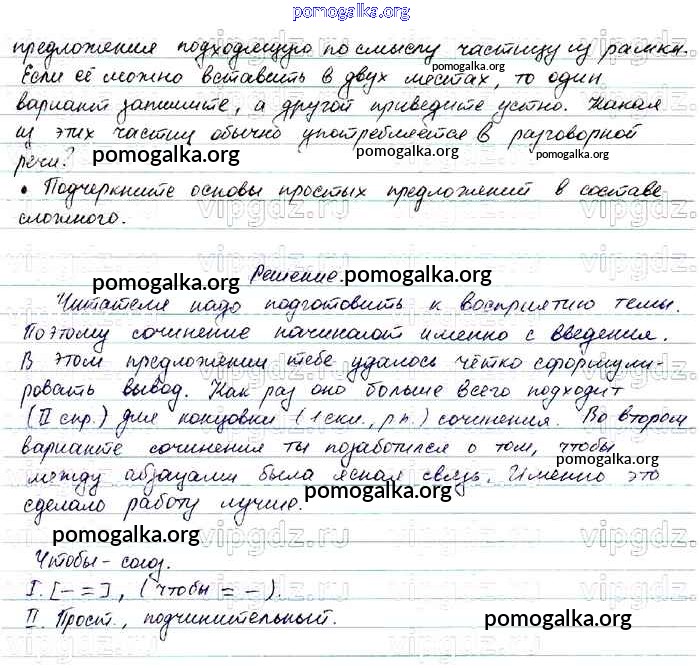 pomogalka.org
предложения подходящую по смыслу частицу из рамки.
pomogalka.org
Если её можно вставить в двух местах, то один
вариант запишите, а другой приведите устно. Какая
из этих частиц обычно употребляется в разговорной
речи?
pomogalka.org pomogalka.org pomogalka.org
• Подчеркните основы простых предложений в составе
сложного.
vipgdz.ru vipgdz.ru
Решение.
pomogalka.org pomogalka.org
Читателя надо подготовить к восприятию темы.
pomogalka.org
Поэтому сочинение начинают именно с введения.
В этом предложении тебе удалось чётко сформули-
pomogalka.org pomogalka.org
ровать вывод. Как раз оно больше всего подходит
(II спр.) для концовки (1 скл., р.п.) сочинения. Во втором
варианте сочинения ты позаботился о том, чтобы
pomogalka.org
между абзацами была ясная связь. Именно это
pomogalka.org
сделало работу лучше.
pomogalka.org
vipgdz.ru vipgdz.ru
Чтобы - союз.
I. [- =], (чтобы = -).
II. Прост., подчинительный.
pomogalka.org
vipgdz.ru vipgdz.ru